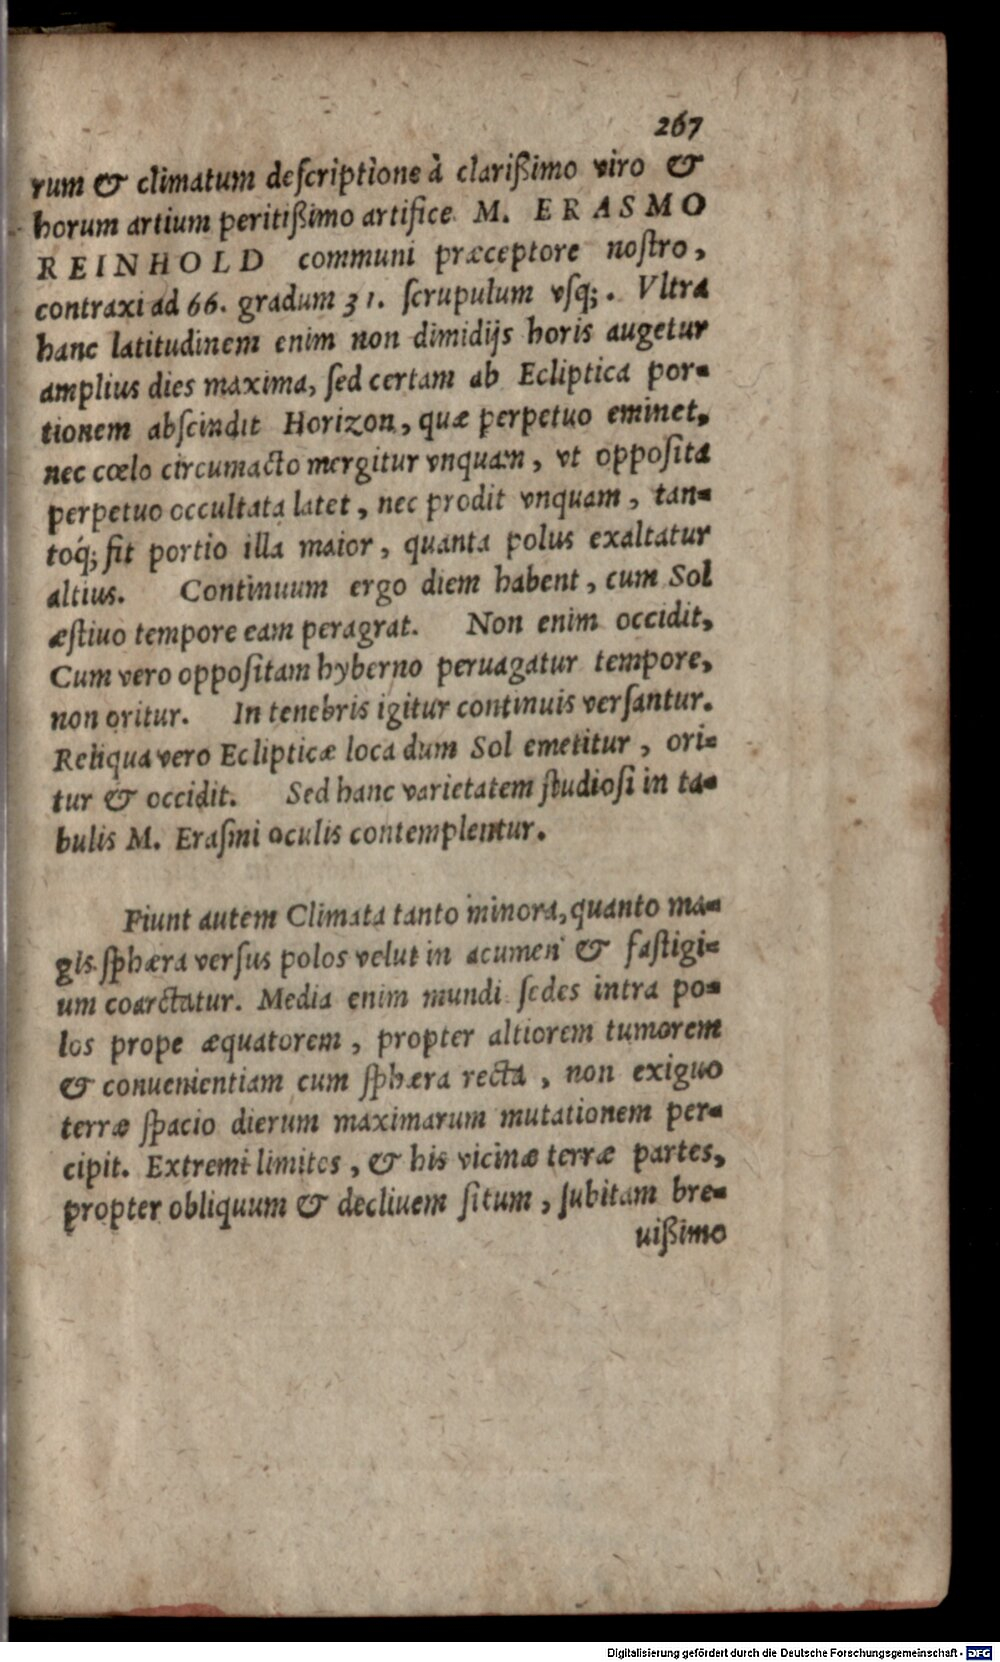 267
rum & climatum descriptione à clarißimo viro &
horum artium peritißimo artifice M. ERASMO
REINHOLD communi præceptore nostro,
contraxi ad 66. gradum 31. scrupulum vsq;. Vltra
hanc latitudinem enim non dimidijs horis augetur
amplius dies maxima, sed certam ab Ecliptica por-
tionem abscindit Horizon, quæ perpetuo eminet,
nec cœlo circumacto mergitur vnquam, vt opposita
perpetuo occultata latet, nec prodit vnquam, tan-
toq́; fit portio illa maior, quanta polus exaltatur
altius. Continuum ergo diem habent, cum Sol
æstiuo tempore eam peragrat. Non enim occidit,
Cum vero oppositam hyberno peruagatur tempore,
non oritur. In tenebris igitur continuis versantur.
Reliqua vero Eclipticæ loca dum Sol emetitur, ori-
tur & occidit. Sed hanc varietatem studiosi in ta-
bulis M. Erasmi oculis contemplentur.
Fiunt autem Climata tanto minora, quanto ma-
gis sphæra versus polos velut in acumen & fastigi-
um coarctatur. Media enim mundi sedes intra po-
los prope æquatorem, propter altiorem tumorem
& conuenientiam cum sphæra recta, non exiguo
terræ spacio dierum maximarum mutationem per-
cipit. Extremi limites, & his vicinæ terræ partes,
propter obliquum & decliuem situm, subitam bre-
uißimo
Digitalisierung gefördert durch die Deutsche Forschungsgemeinschaft - DFG